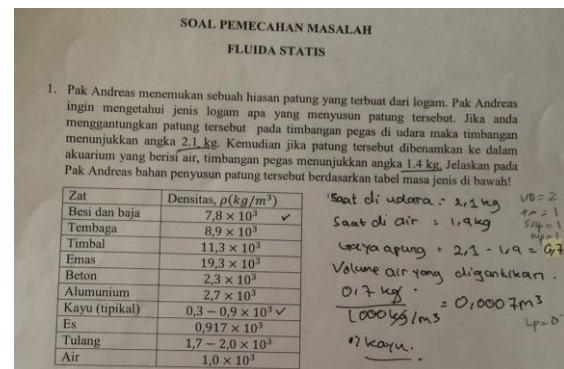 SOAL PEMECAHAN MASALAH
FLUIDA STATIS
1. Pak Andreas menemukan sebuah hiasan patung yang terbuat dari logam. Pak Andreas
ingin mengetahui jenis logam apa yang menyusun patung tersebut. Jika anda
menggantungkan patung tersebut pada timbangan pegas di udara maka timbangan
menunjukkan angka 2.1 kg. Kemudian jika patung tersebut dibenamkan ke dalam
akuarium yang berisi air, timbangan pegas menunjukkan angka 1.4 kg. Jelaskan pada
Pak Andreas bahan penyusun patung tersebut berdasarkan tabel masa jenis di bawah!
Zat Densitas, ρ(kg/m³)
Besi dan baja 7,8 × 10³ ✓
Tembaga 8,9 × 10³
Timbal 11,3 × 10³
Emas 19,3 × 10³
Beton 2,3 × 10³
Alumunium 2,7 × 10³
Kayu (tipikal) 0,3 – 0,9 × 10³ ✓
Es 0,917 × 10³
Tulang 1,7 – 2,0 × 10³
Air 1,0 × 10³
Saat di udara = 2,1 kg
Saat di air = 1,4 kg
Gaya apung = 2,1 - 1,4 = 0,7
Volume air yang digantikan.
0,7 kg
1000 kg/m3 = 0,0007m³
kayu.
UD = 2
= 1
= 1
= 1